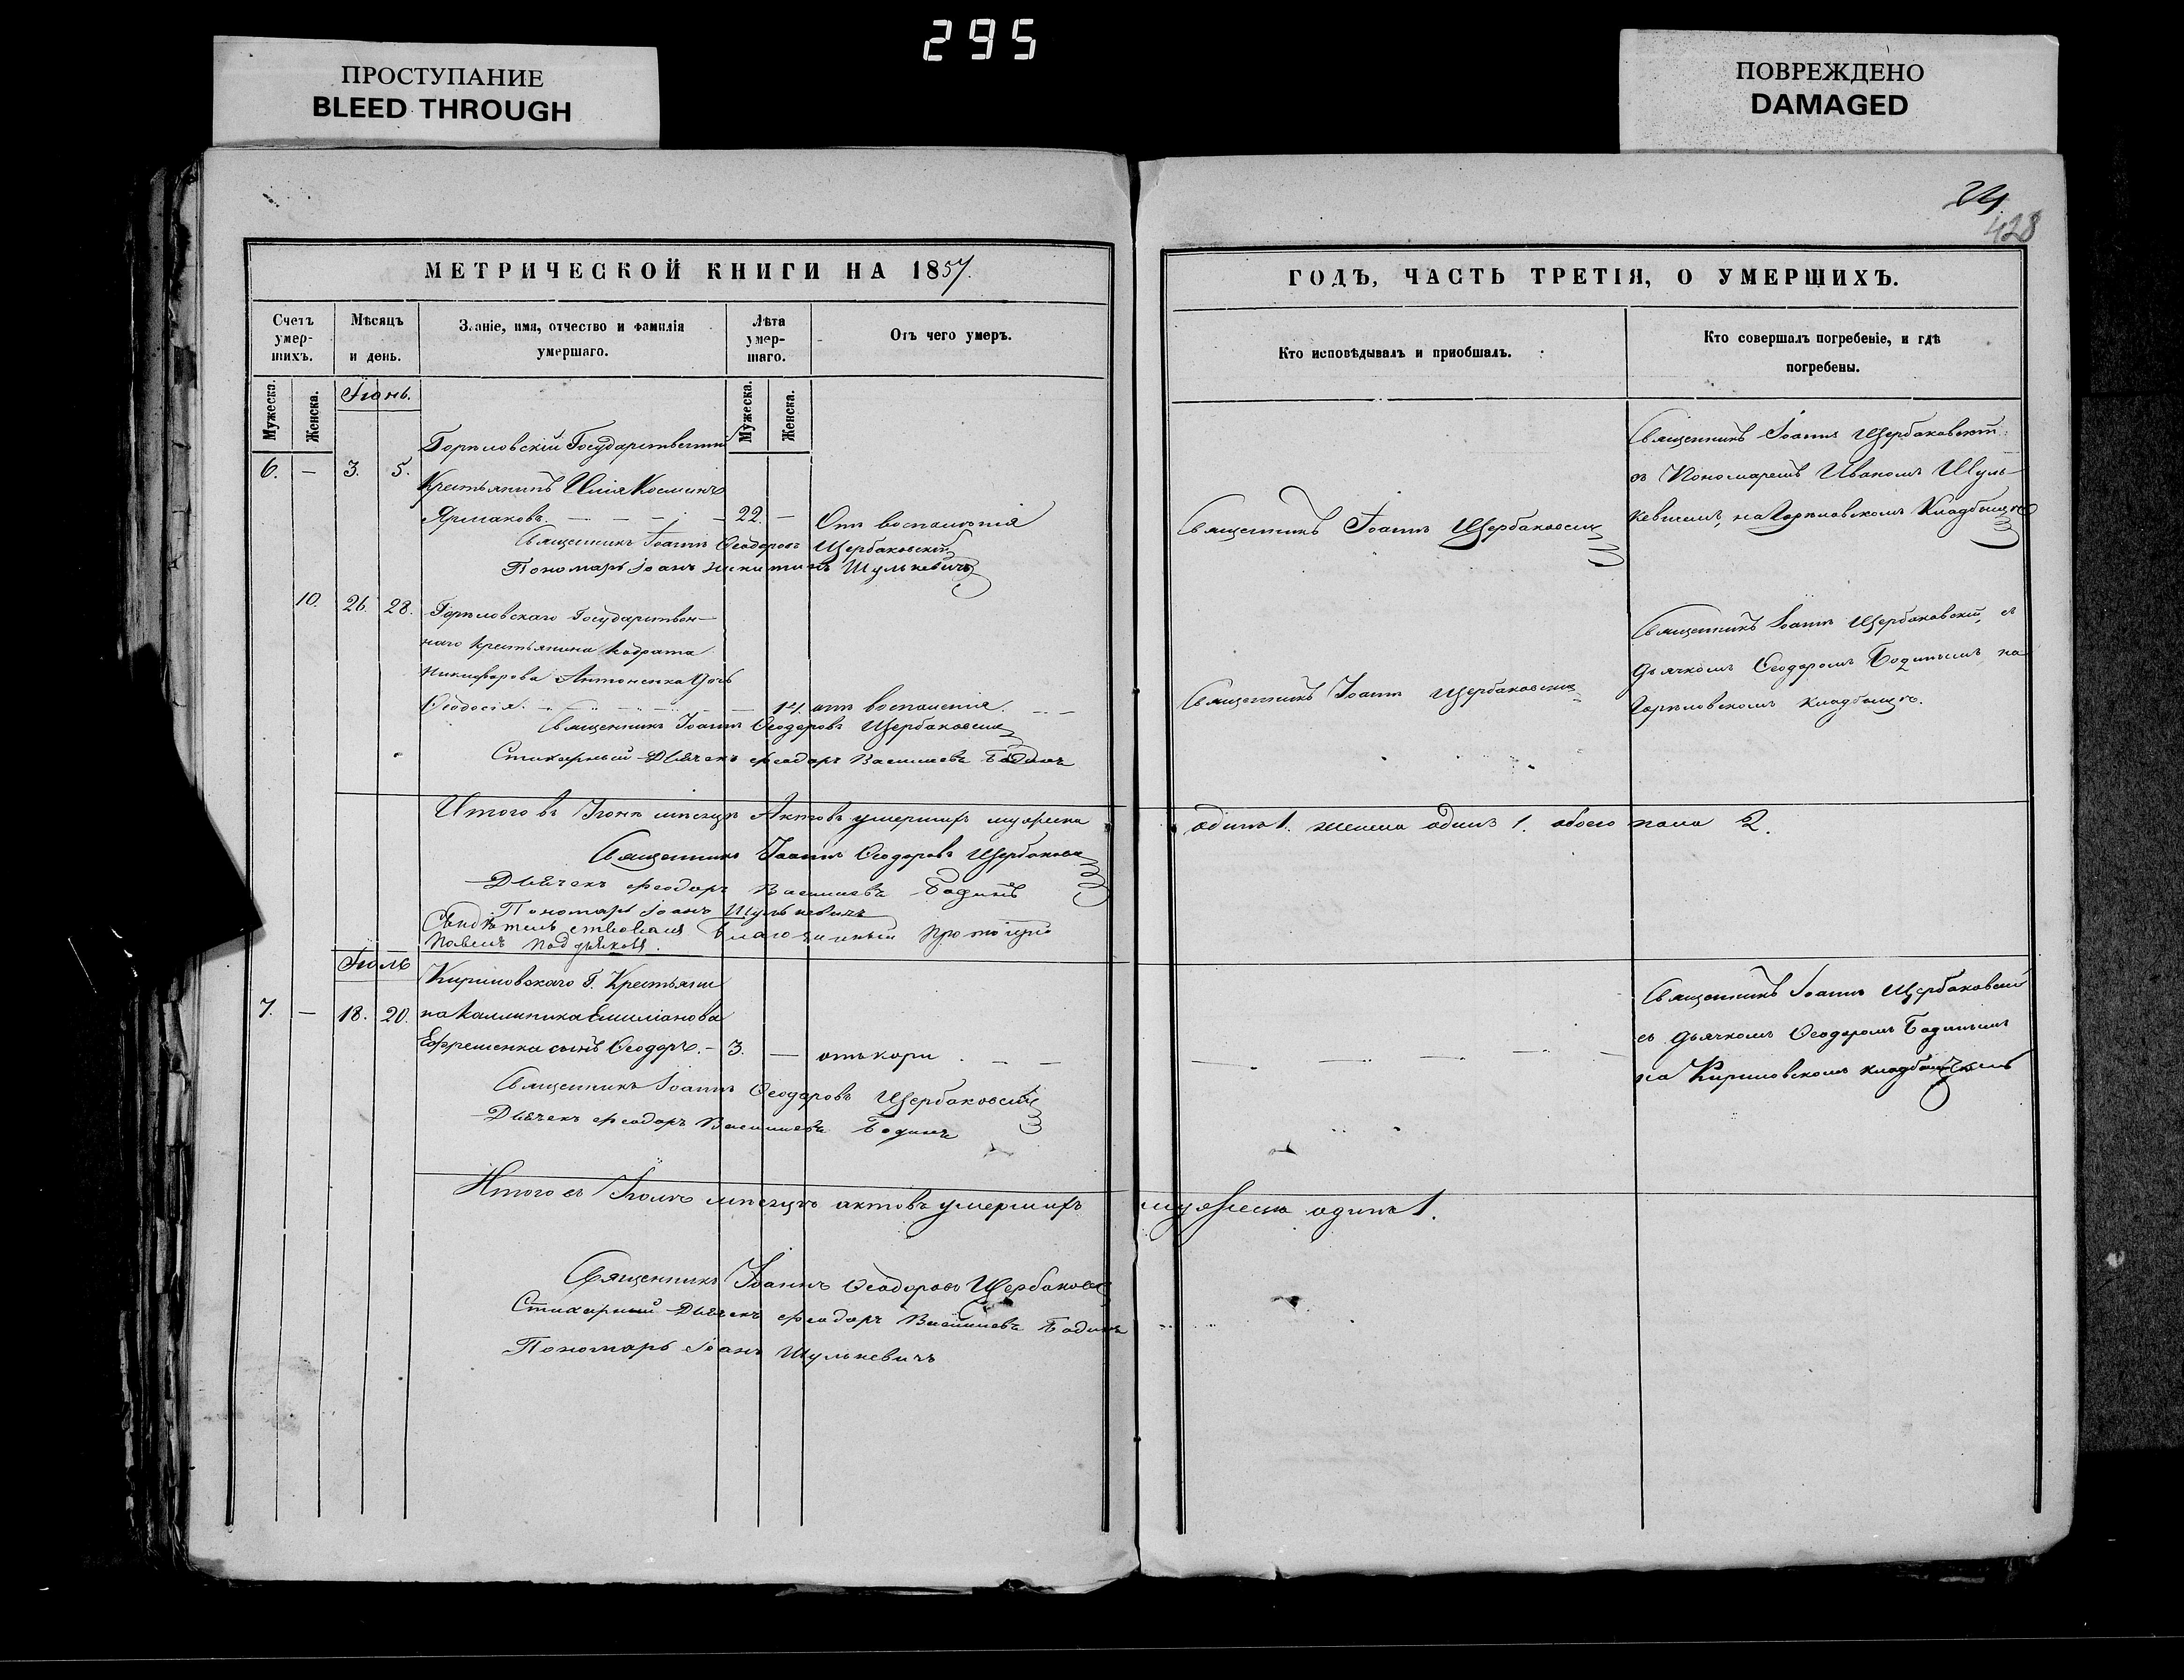 295
ПРОСТУПАНИЕ
BLEED THROUGH
ПОВРЕЖДЕНО
DAMAGED
24
428
МЕТРИЧЕСКОЙ КНИГИ НА 1857.
Счетъ умер-шихъ.
Мѣсяцъ и день.
Званіе, имя, отчество и фамилія умершаго.
Лѣта умер-шаго.
Отъ чего умеръ.
Мужеска.
Женска.
Мужеска.
Женска.
Іюнь.
Горѣловскій Государственный
6. — 3. 5. Крестьянинъ Илія Косминъ
Ярмаковъ. — — — 22. — Отъ воспаленія
Священникъ Іоаннъ Ѳеодоровъ Щербаковскій
Пономарь Іоанъ Никитинъ Шулькевичъ
10. 26. 28. Горѣловскаго Государствен-
наго крестьянина Кодрата
Никифорова Антоненка дочь
Ѳеодосія. — — отъ воспаленія. — —
Священникъ Іоаннъ Ѳеодоровъ Щербаковскій
Стихарный Дьячекъ Феодоръ Васильевъ Бодинъ
Итого въ Іюнѣ мѣсяцѣ Актовъ умершихъ мужеска
Священникъ Іоаннъ Ѳеодоровъ Щербаковскій
Дьячекъ Феодоръ Васильевъ Бодинъ
Пономарь Іоанъ Шулькевичъ
Благочинный Протоіерей
Павелъ
Іюль
Кириловскаго Г. Крестьяни
7. — 18. 20. на Каллиника Емиліанова
Ефременка сынъ Ѳеодоръ. — 3. — отъ кори — —
Священникъ Іоаннъ Ѳеодоровъ Щербаковскій
Дьячекъ Феодоръ Васильевъ Бодинъ
Итого въ Іюлѣ мѣсяцѣ актовъ умершихъ
Священникъ Іоаннъ Ѳеодоровъ Щербаковскій
Стихарный Дьячекъ Феодоръ Васильевъ Бодинъ
Пономарь Іоанъ Шулькевичъ
ГОДЪ, ЧАСТЬ ТРЕТІЯ, О УМЕРШИХЪ.
Кто исповѣдывалъ и пріобщалъ.
Кто совершалъ погребеніе, и гдѣ погребены.
Священникъ Іоаннъ Щербаковскій
Священникъ Іоаннъ Щербаковскій
съ Пономаремъ Иваномъ Шуль-
кевичемъ, на Горѣловскомъ Кладбищѣ
Священникъ Іоаннъ Щербаковскій
Священникъ Іоаннъ Щербаковскій, съ
дьячкомъ Ѳеодоромъ Бодинымъ на
Горѣловскомъ кладбищѣ.
одинъ 1. женска одинъ 1. обоего пола 2.
Священникъ Іоаннъ Щербаковскій
съ дьячкомъ Ѳеодоромъ Бодинымъ
на Кириловскомъ
мужеска одинъ 1.